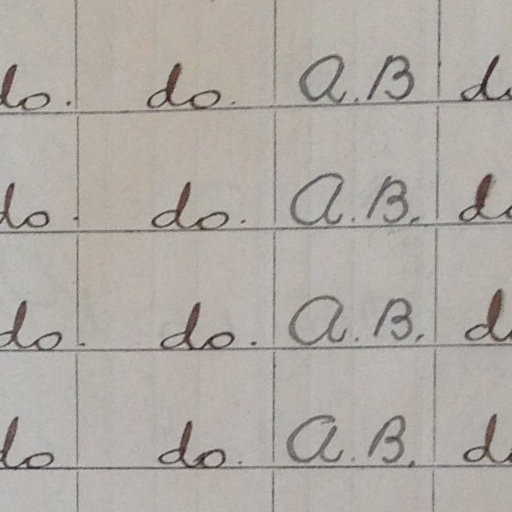 do. do. A.B d
do. do. A.B. d
do. do. A.B. d
do do. A.B. d